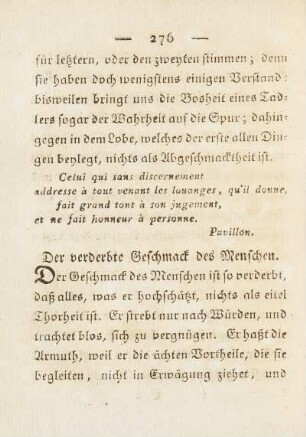 — 276 —
für letztern, oder den zweyten stimmen; denn
sie haben doch wenigstens einigen Verstand-
bisweilen bringt uns die Bosheit eines Tad-
lers sogar der Wahrheit auf die Spur; dahin-
gegen in dem Lobe, welches der erste allen Din-
gen beylegt, nichts als Abgeschmacktheit ist.
Celui qui sans discernement
addresse à tout venant les louanges, qu'il donne,
fait grand tont à son jugement,
et ne fait honneur à personne.
Pavillon.
Der verderbte Geschmack des Menschen.
Der Geschmack des Menschen ist so verderbt,
daß alles, was er hochschätzt, nichts als eitel
Thorheit ist. Er strebt nur nach Würden, und
trachtet blos, sich zu vergnügen. Er haßt die
Armuth, weil er die ächten Vortheile, die sie
begleiten, nicht in Erwägung ziehet, und